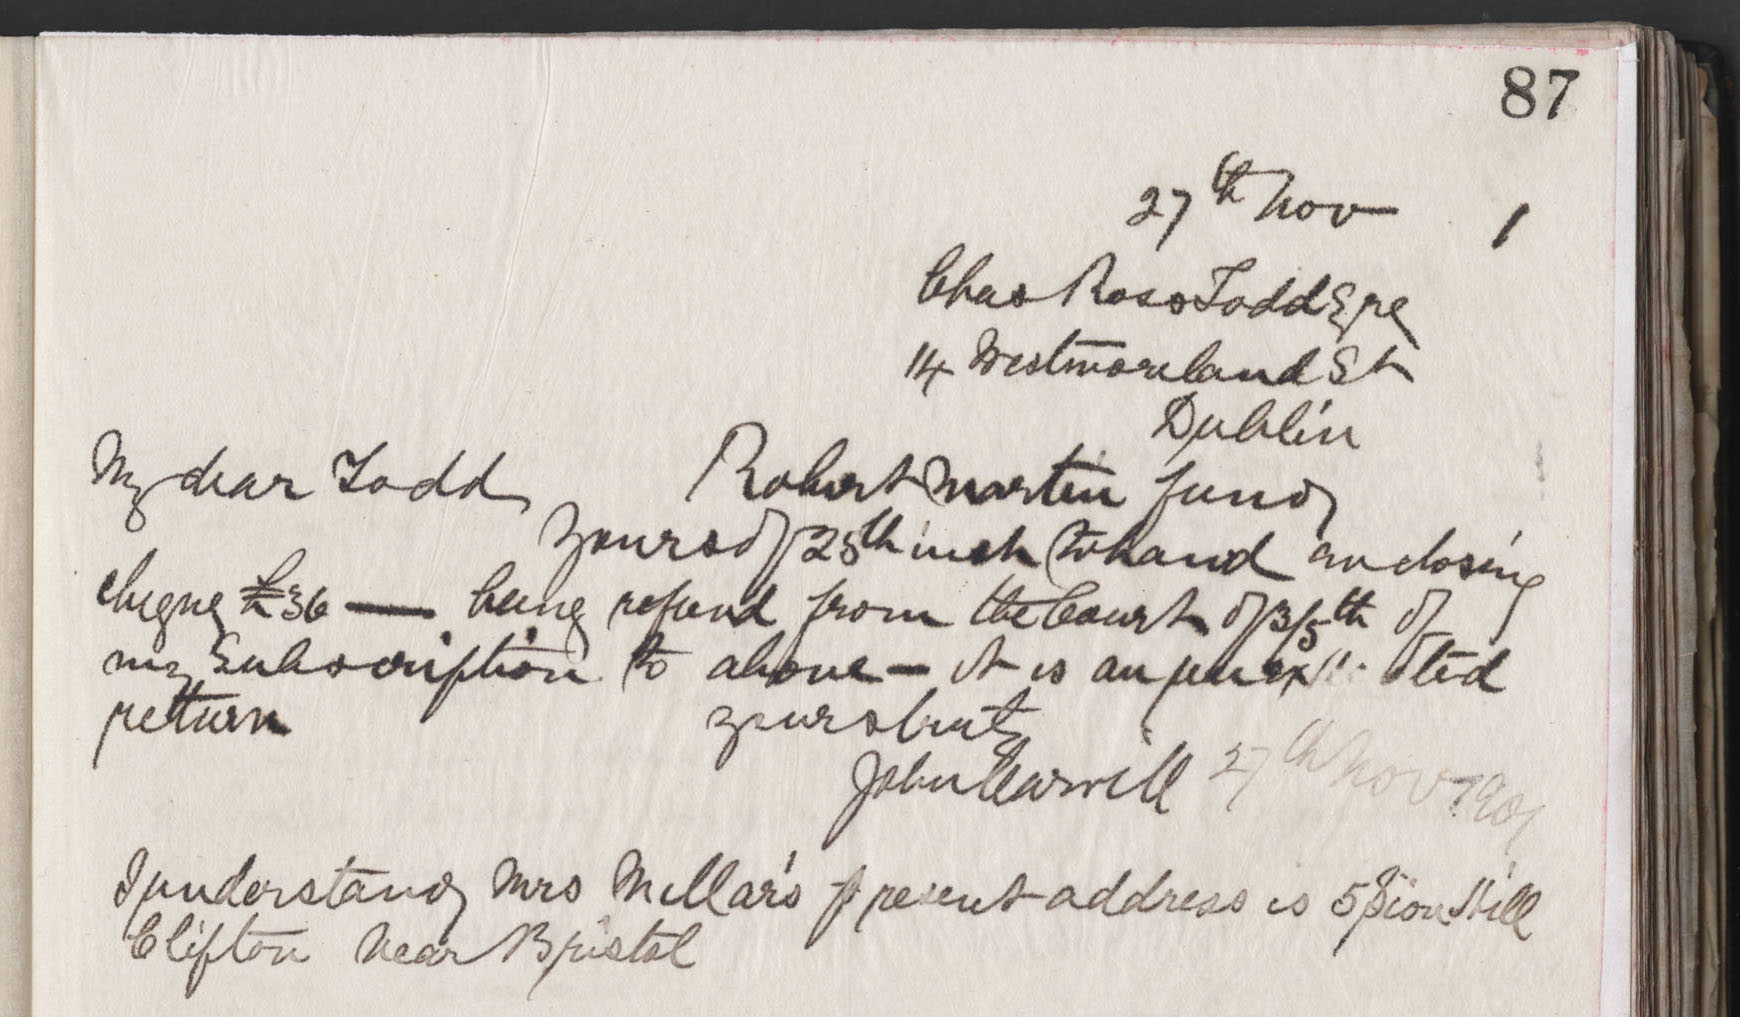 87
27th Nov 1
Chas Ross Todd Esqre
14 Westmoreland St
Dublin
My dear Todd Robert Martin fund
Yours of 25th inst to hand enclosing
cheque £36 — being refund from the Court of 3/5th of
my Subscription to above — it is an unexpected
return yours truly
John 27th Nov 1901
I understand Mrs Millar's present address is 5 Sion Hill
Clifton near Bristol